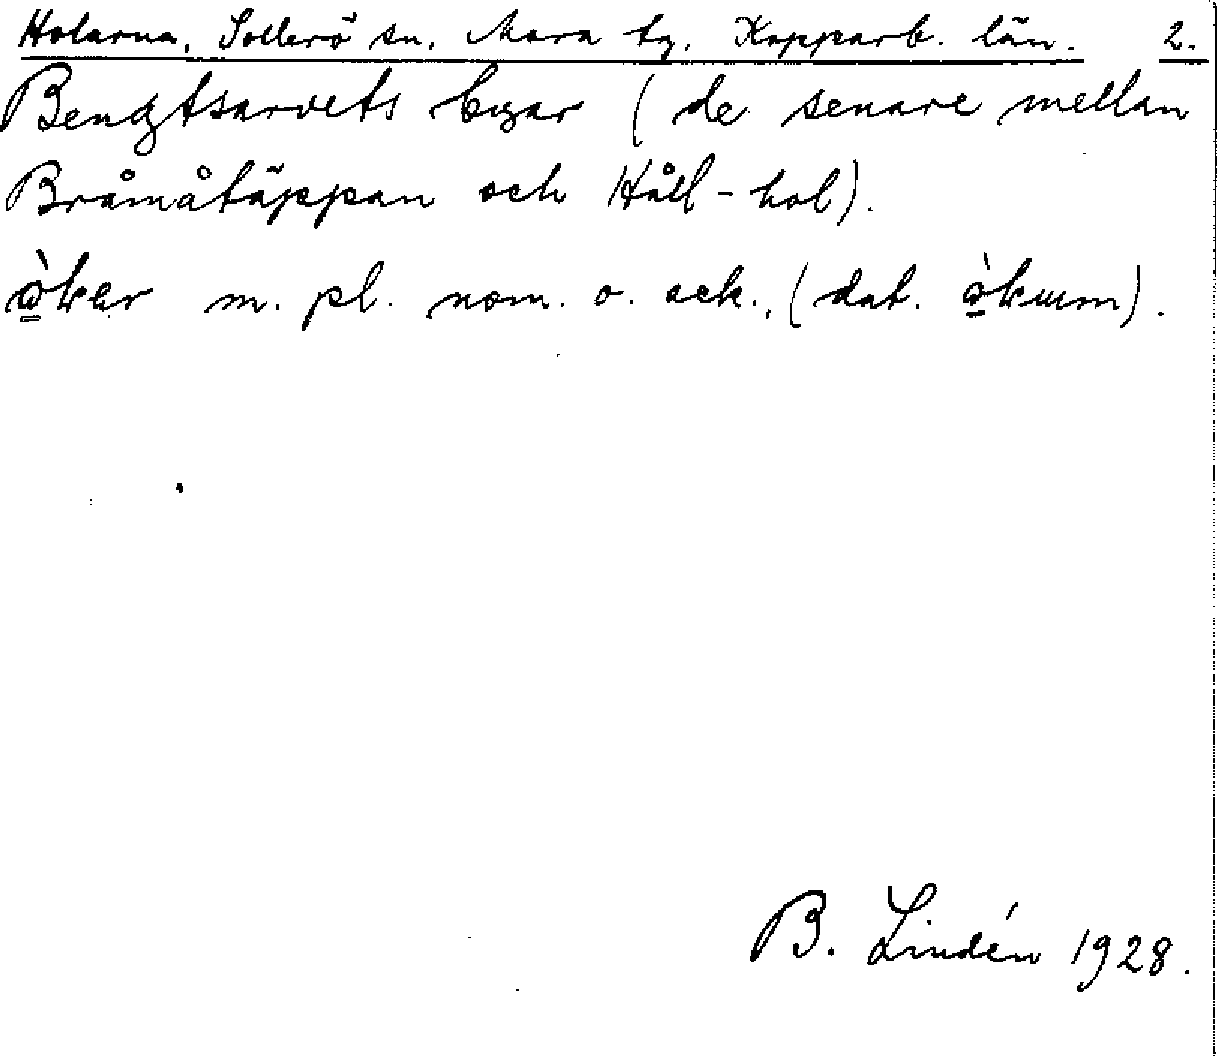 Holarna, Sollerö sn, Mora tg, Kopparb. län. 2.
Bengtsarvets byar (de senare mellan
Bråmåtäppan och Håll-hol).
m. pl. nom. o. ack., (dat.
B. Lindén 1928.